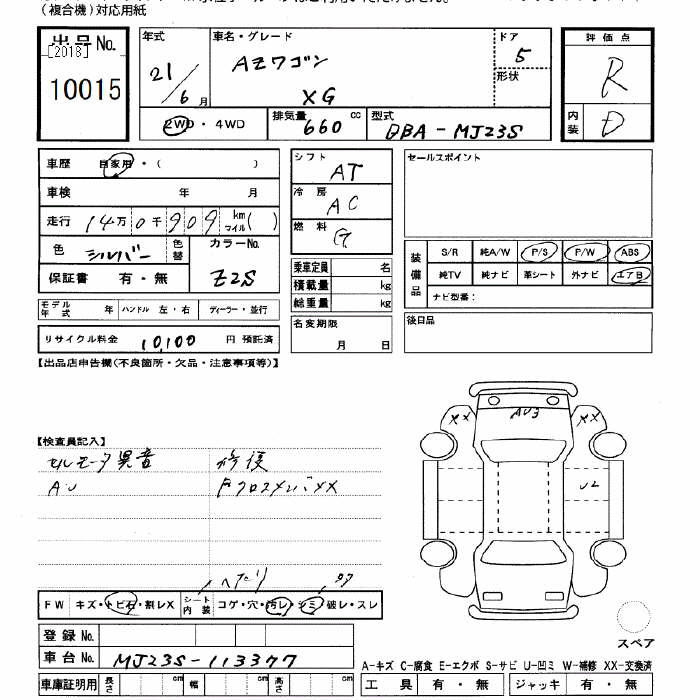 (複合機)対応用紙
出品No.
[2018]
10015
年式 21/6月
車名・グレード AZワゴン XG
ドア 5
形状
2WD・4WD
排気量 660 cc
型式 DBA-MJ23S
評価点 R
内装 D
車歴 自家用・( )
車検 年 月
走行 14万0千909 km マイル( )
色 シルバー 色替
カラーNo. Z2S
保証書 有・無
モデル年式 年 ハンドル 左・右 ディーラー・並行
リサイクル料金 10,100 円 預託済
シフト AT
冷房 AC
燃料 G
乗車定員 名
積載量 kg
総重量 kg
名変期限 月 日
セールスポイント
装備品
S/R 純A/W P/S P/W ABS
純TV 純ナビ 革シート 外ナビ エアB
ナビ型番:
後日品
【出品店申告欄(不良箇所・欠品・注意事項等)】
【検査員記入】
セルモータ異音 修復
AU FクロスメンバXX
ヘタリ
FW キズ・トビ石・割レX
シート内装 コゲ・穴・汚レ・シミ・破レ・スレ
登録No.
車台No. MJ23S-113377
車庫証明用 長さ cm 幅 cm 高さ cm
XX AU3 XX
U2
スペア
A-キズ C-腐食 E-エクボ S-サビ U-凹ミ W-補修 XX-交換済
工具 有・無 ジャッキ 有・無